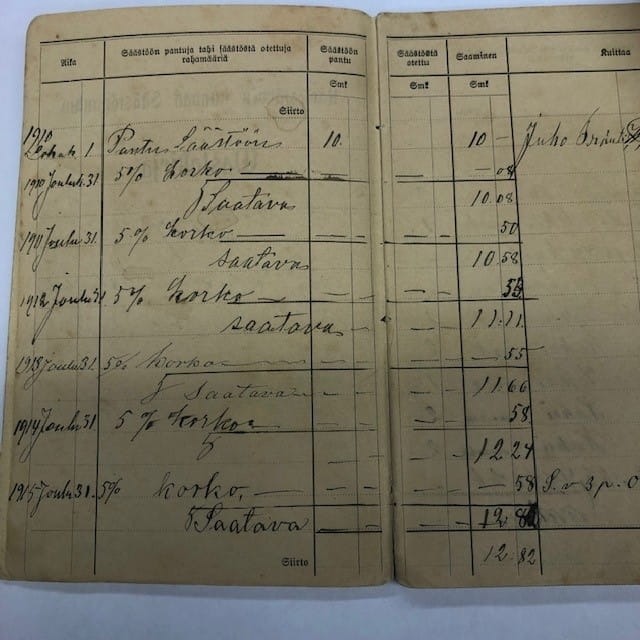 Aika Säästöön pantuja tahi säästöstä otettuja rahamääriä Säästöön pantu Säästöstä otettu Saaminen Kuittaa
Smk Smk Smk
Siirto
1910
Lokak. 1 Pantu Säästöön 10. 10 — Juho
1910 Jouluk. 31 5% korko — — — 08
Saatava 10.08
Joulu 31. 5% korko — — — — — 50
saatava — — — — 10.58
1912 Joulu 31 5% korko — — — — — 53
saatava — — — — 11.11
1913 Joulu 31. 5% korko — — — — — 55
Saatava — — — — 11.66
1914 Joulu 31 5% korko — — — 58
— — — — 12 24
1915 Joulu 31. 5% korko, — — — — — — 58 S. v 3 p. O
Saatava — — — — 12 82
Siirto 12.82